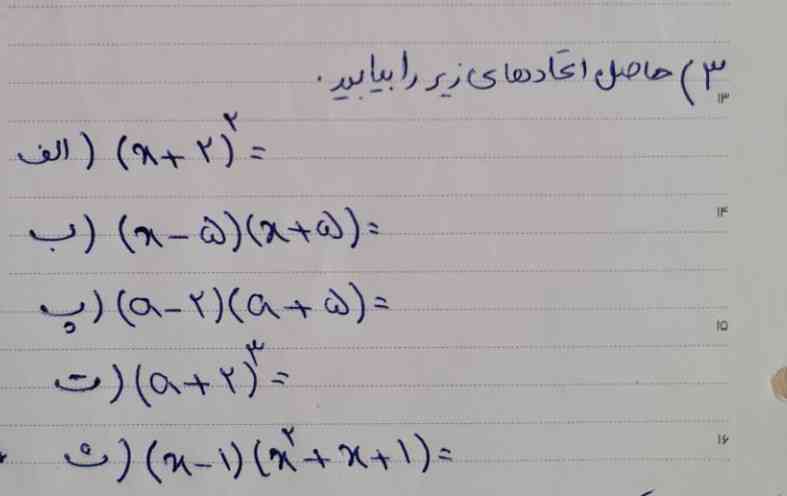 ۳) حاصل اتحادهای زیر را بیابید.
۱۳
الف) (x+۲)^۲ =
۱۴
ب) (x-۵)(x+۵) =
پ) (a-۲)(a+۵) =
۱۵
ت) (a+۲)^۳ =
۱۶
ث) (x-۱)(x^۲+x+۱) =